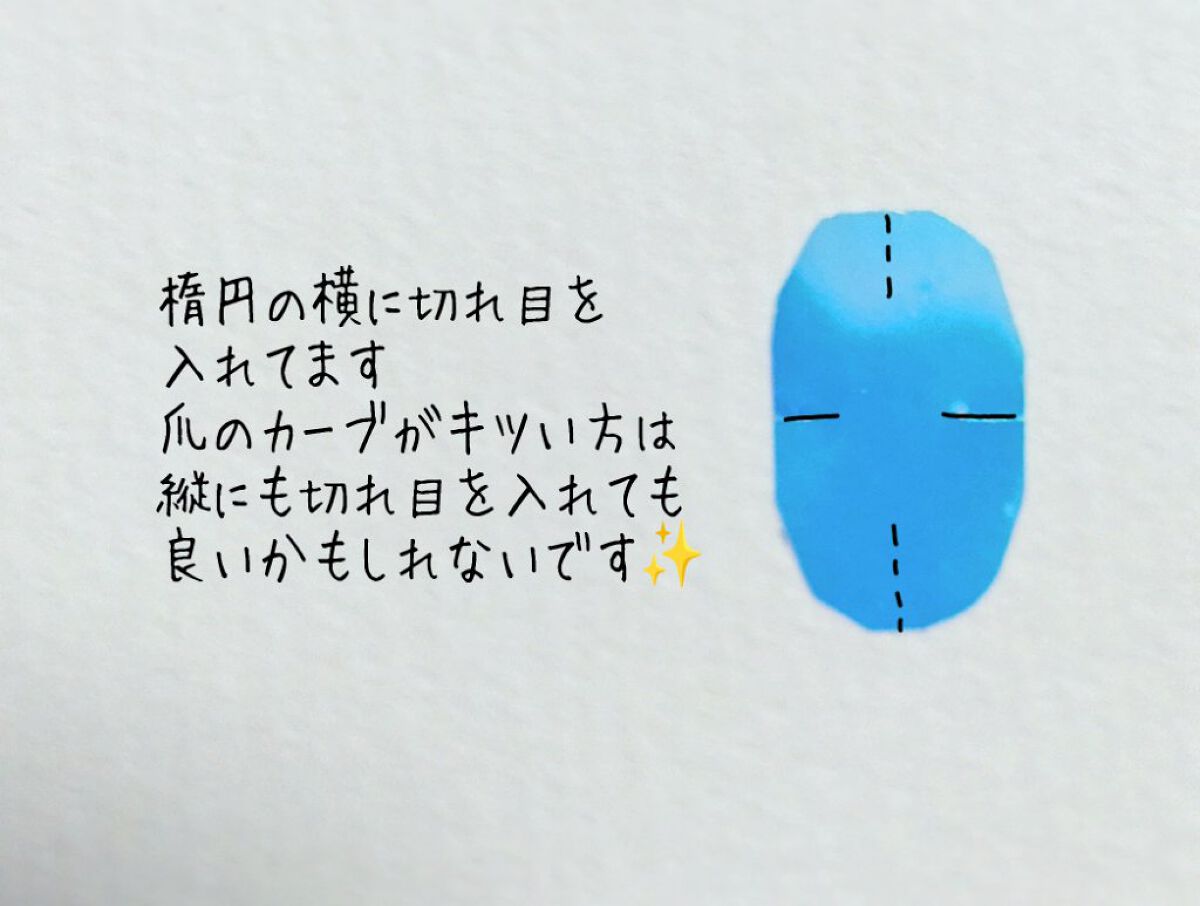 楕円の横に切れ目を
入れてます
爪のカーブがキツい方は
縦にも切れ目を入れても
良いかもしれないです✨